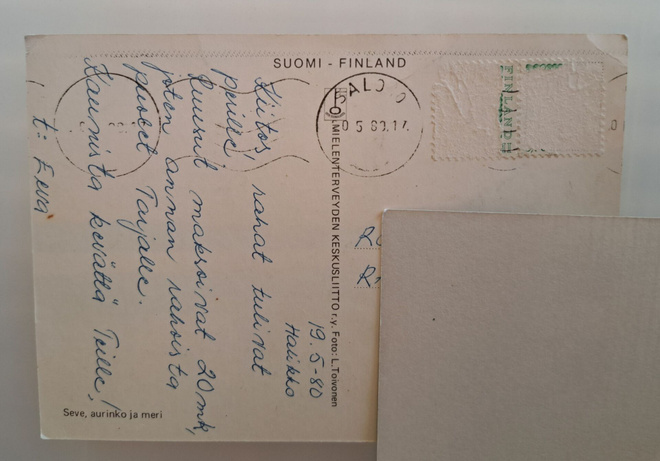 SUOMI - FINLAND
SALO
20.5.80.17
FINLAND
MIELENTERVEYDEN KESKUSLIITTO r.y. Foto: L. Toivonen
19.5-80
Halikko
Kiitos, rahat tulivat
perille
Ruusut maksoivat 20mk,
joten annan rahoista
puolet Tarjalle.
Kaunista kevättä Teille!
t: Eeva
Seve, aurinko ja meri